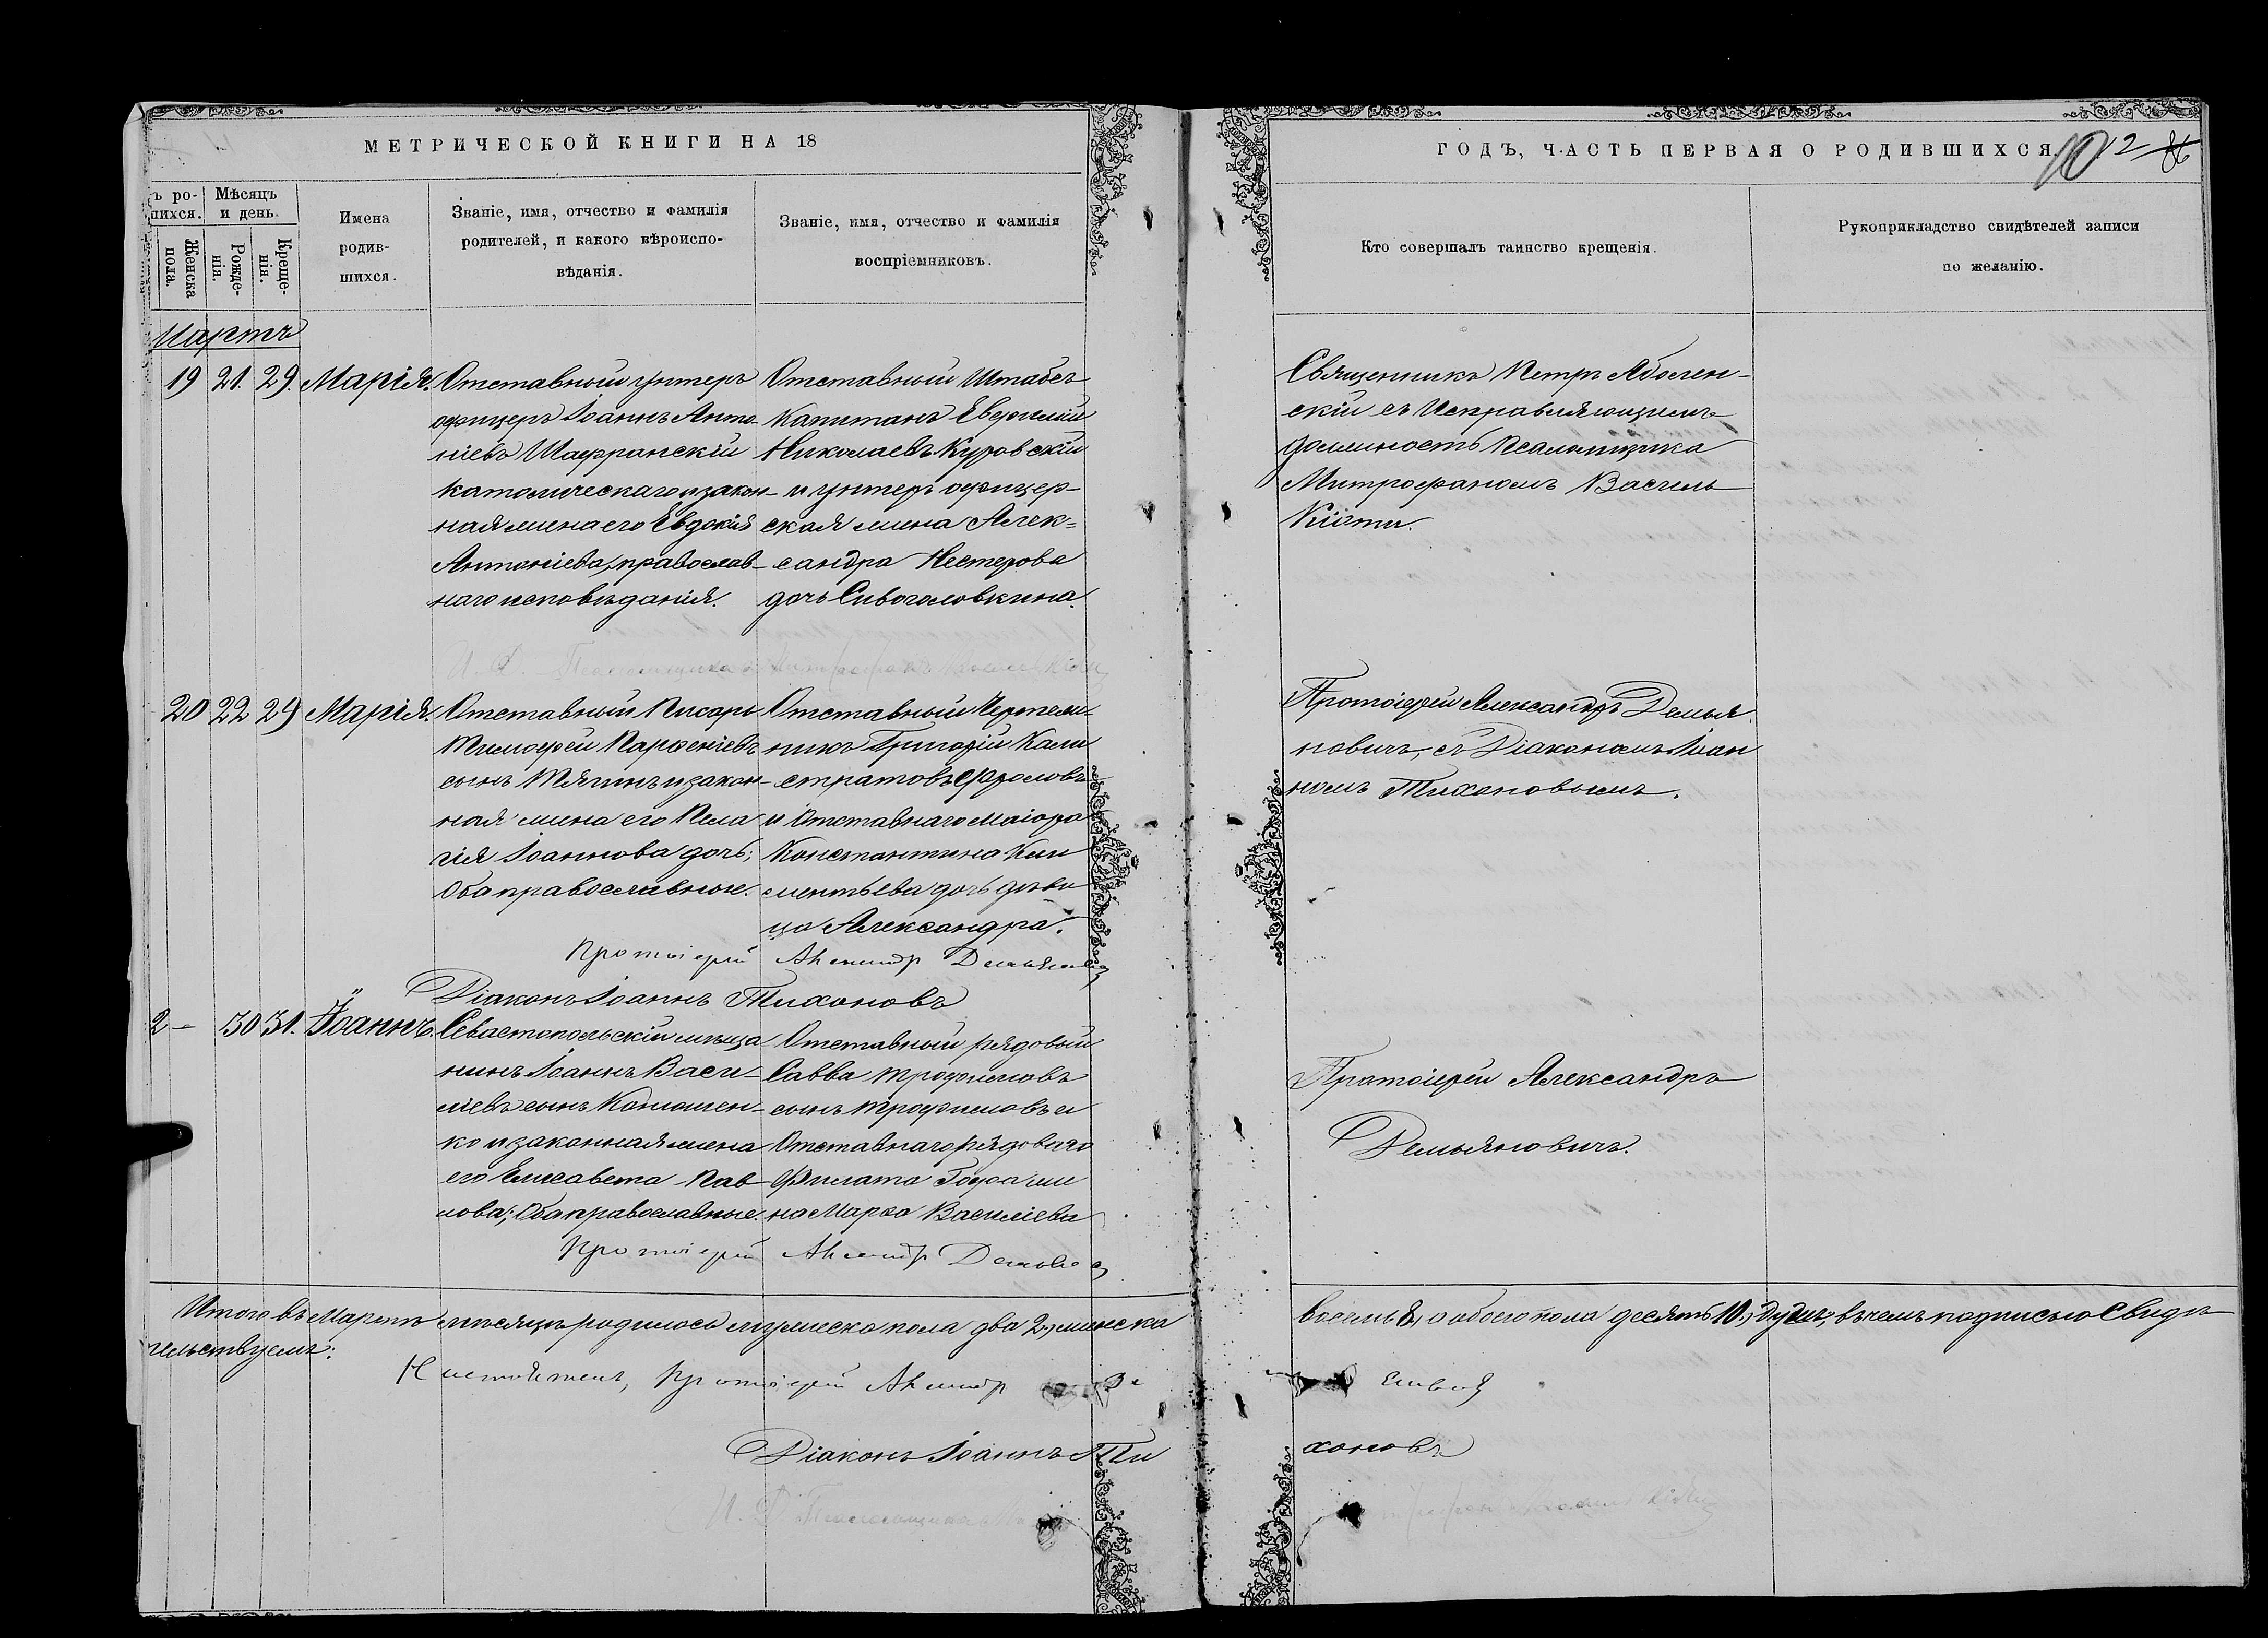 МЕТРИЧЕСКОЙ КНИГИ НА 18
ГОДЪ, ЧАСТЬ ПЕРВАЯ О РОДИВШИХСЯ.
102
86
ъ ро-
шихся.
Мѣсяцъ
и день.
Женска
пола.
Рожде-
нія.
Креще-
нія.
Имена
родив-
шихся.
Званіе, имя, отчество и фамилія
родителей, и какого вѣроиспо-
вѣданія.
Званіе, имя, отчество и фамилія
воспріемниковъ.
Кто совершалъ таинство крещенія.
Рукоприкладство свидѣтелей записи
по желанію.
Мартъ
19 21. 29. Марія.
Отставный унтеръ
офицеръ Іоаннъ Анто-
ніевъ Шафранскій
католическаго и закон-
ная жена его Евдокія
Антоніева, православ-
наго исповѣданія.
Отставный Штабсъ
Капитанъ Евфимій
Николаевъ Куровскій
и унтеръ офицер-
ская жена Алек-
сандра Нестерова
дочь Сивоголовкина.
Священникъ Петръ Аболен-
скій съ Исправляющимъ
должность Псаломщика
Митрофаномъ Василь
Кіоти.
И. Д. Псаломщика Митрофанъ
20 22 29 Марія.
Отставный Писарь
Тимофей Парфеніевъ
сынъ Тягинъ и закон-
ная жена его Пела
гія Іоаннова дочь;
Оба православные.
Отставный Чертеж-
никъ Григорій Кали
стратовъ Фроловъ
и Отставнаго Маіора
Константина Кли
ментьева дочь дѣви
ца Александра.
Протоіерей Александръ Демья
новичъ, съ Діакономъ Іоан
номъ Тихоновымъ.
Протоіерей Александр Демьянович
Діаконъ Іоаннъ Тихоновъ
2 – 30 31. Іоаннъ.
Севастопольскій мѣща
нинъ Іоаннъ Васи-
ліевъ сынъ Коноплен-
ко и законная жена
его Елисавета Пав
лова; Оба православные.
Отставный рядовый
Савва Трофимовъ
сынъ Трофимовъ и
Отставнаго рядоваго
Филата жи
на Марѳа Василіева
Протоіерей Александръ
Демьяновичъ.
Протоіерей Александр Демьянович
Итого въ Мартѣ мѣсяцѣ родилось мужеска пола два 2, женска восемь 8, а обоего пола десять 10, душъ, въ чемъ подписью свидѣ
тельствуемъ:
Настоятель, Протоіерей Александр
Діаконъ Іоаннъ Тихоновъ
И. Д. Псаломщика